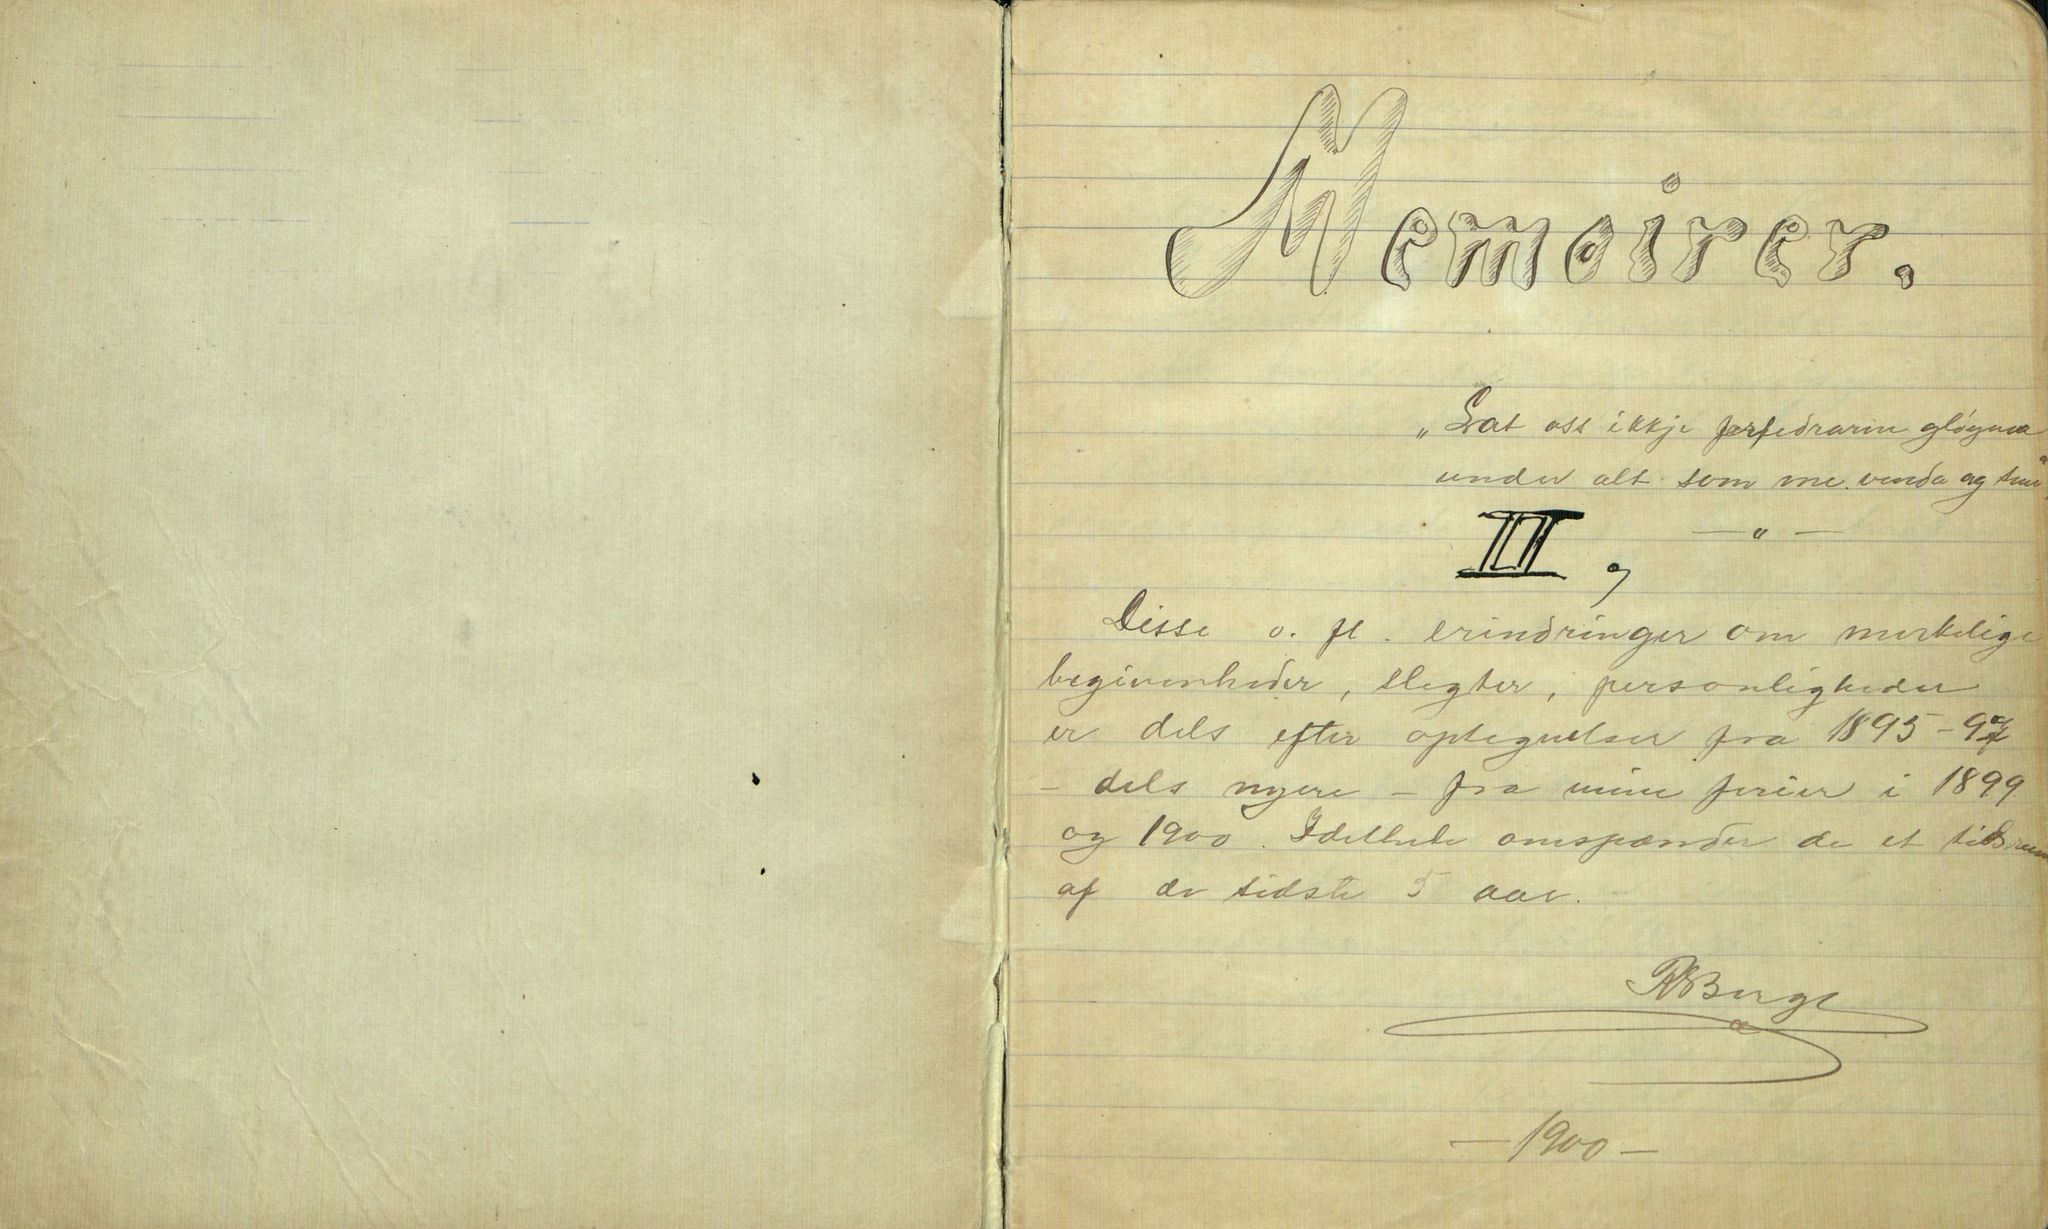 Memoirer.
„Lat oss ikkje forfedrarne gløyma
under alt som me venda og snu"
— " —
II,
Disse o. fl. erindringer om merkelige
begivenheder, slegter, personligheder
er dels efter optegnelser fra 1895-97
- dels nyere - fra mine ferier i 1899
og 1900. Idethele omspænder de et tidsrum
af de sidste 5 aar.
RSBerge
— 1900 —